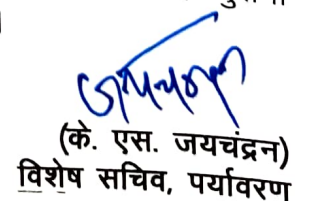 (के. एस. जयचंद्रन)
विशेष सचिव, पर्यावरण